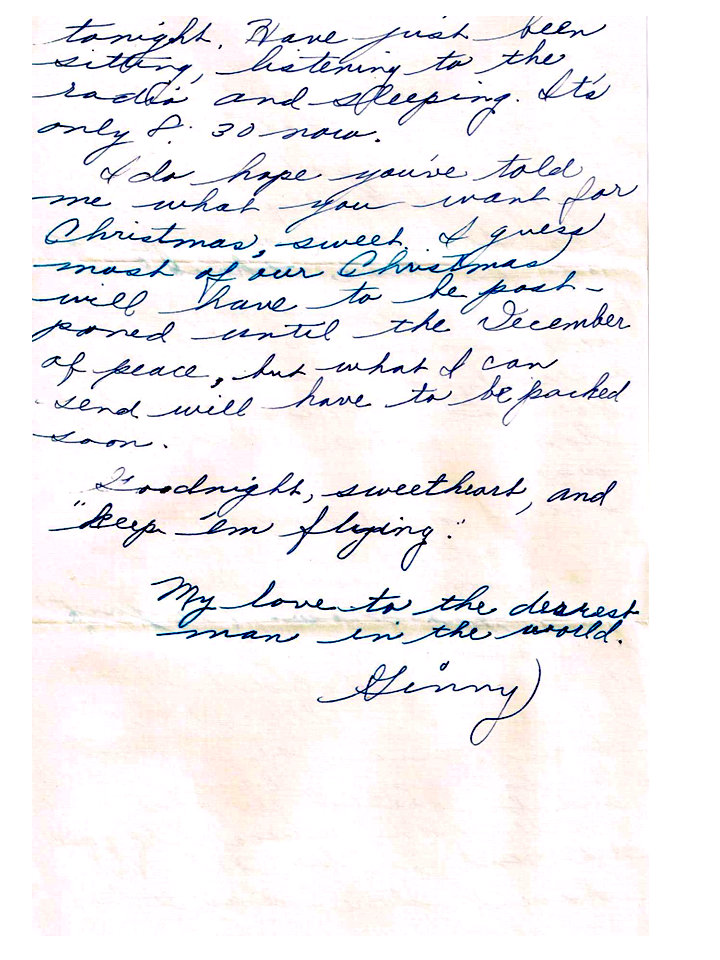 tonight. Have just been
sitting, listening to the
radio and sleeping. It's
only 8:30 now.
I do hope you've told
me what you want for
Christmas, sweet. I guess
most of our Christmas
will have to be post-
poned until the December
of peace, but what I can
send will have to be packed
soon.
Goodnight, sweetheart, and
"keep 'em flying."
My love to the dearest
man in the world.
Ginny